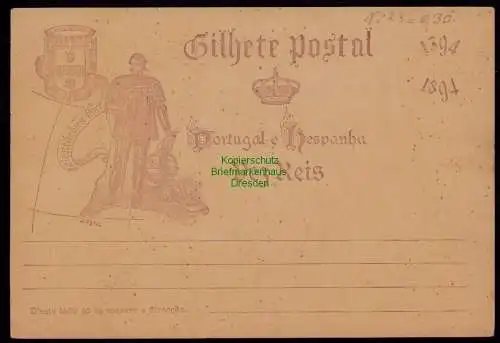 Nº 23 = 0,30
Bilhete Postal
1394
1894
Portugal e Hespanha
Dez Reis
Kopierschutz
Briefmarkenhaus
Dresden
N'este lado só se escreve a direcção.